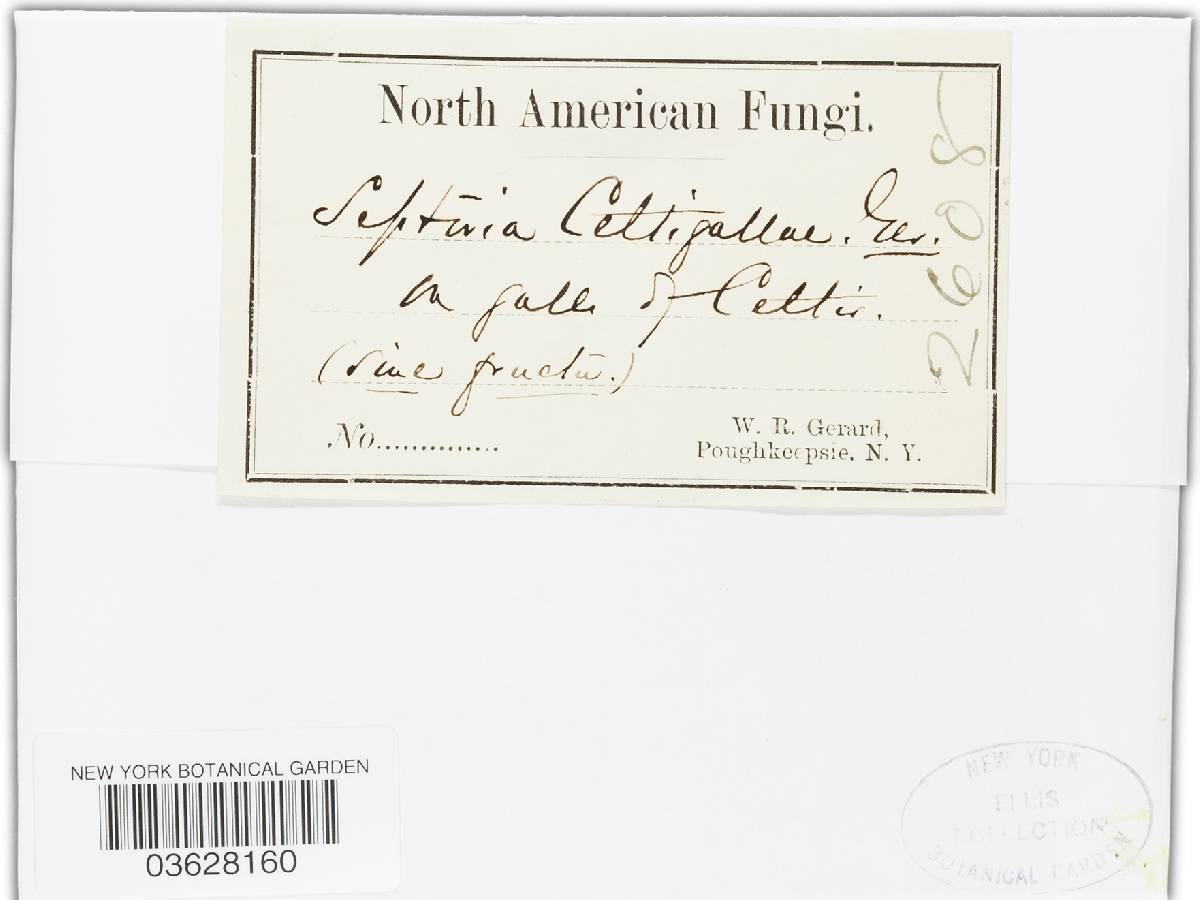 North American Fungi.
Septoria Celtigallae. Ger.
on galls of Celtis.
(sine fructu.)
No..............
W. R. Gerard,
Poughkeepsie, N. Y.
2608
NEW YORK BOTANICAL GARDEN
03628160
NEW YORK
ELLIS
COLLECTION
BOTANICAL GARDEN